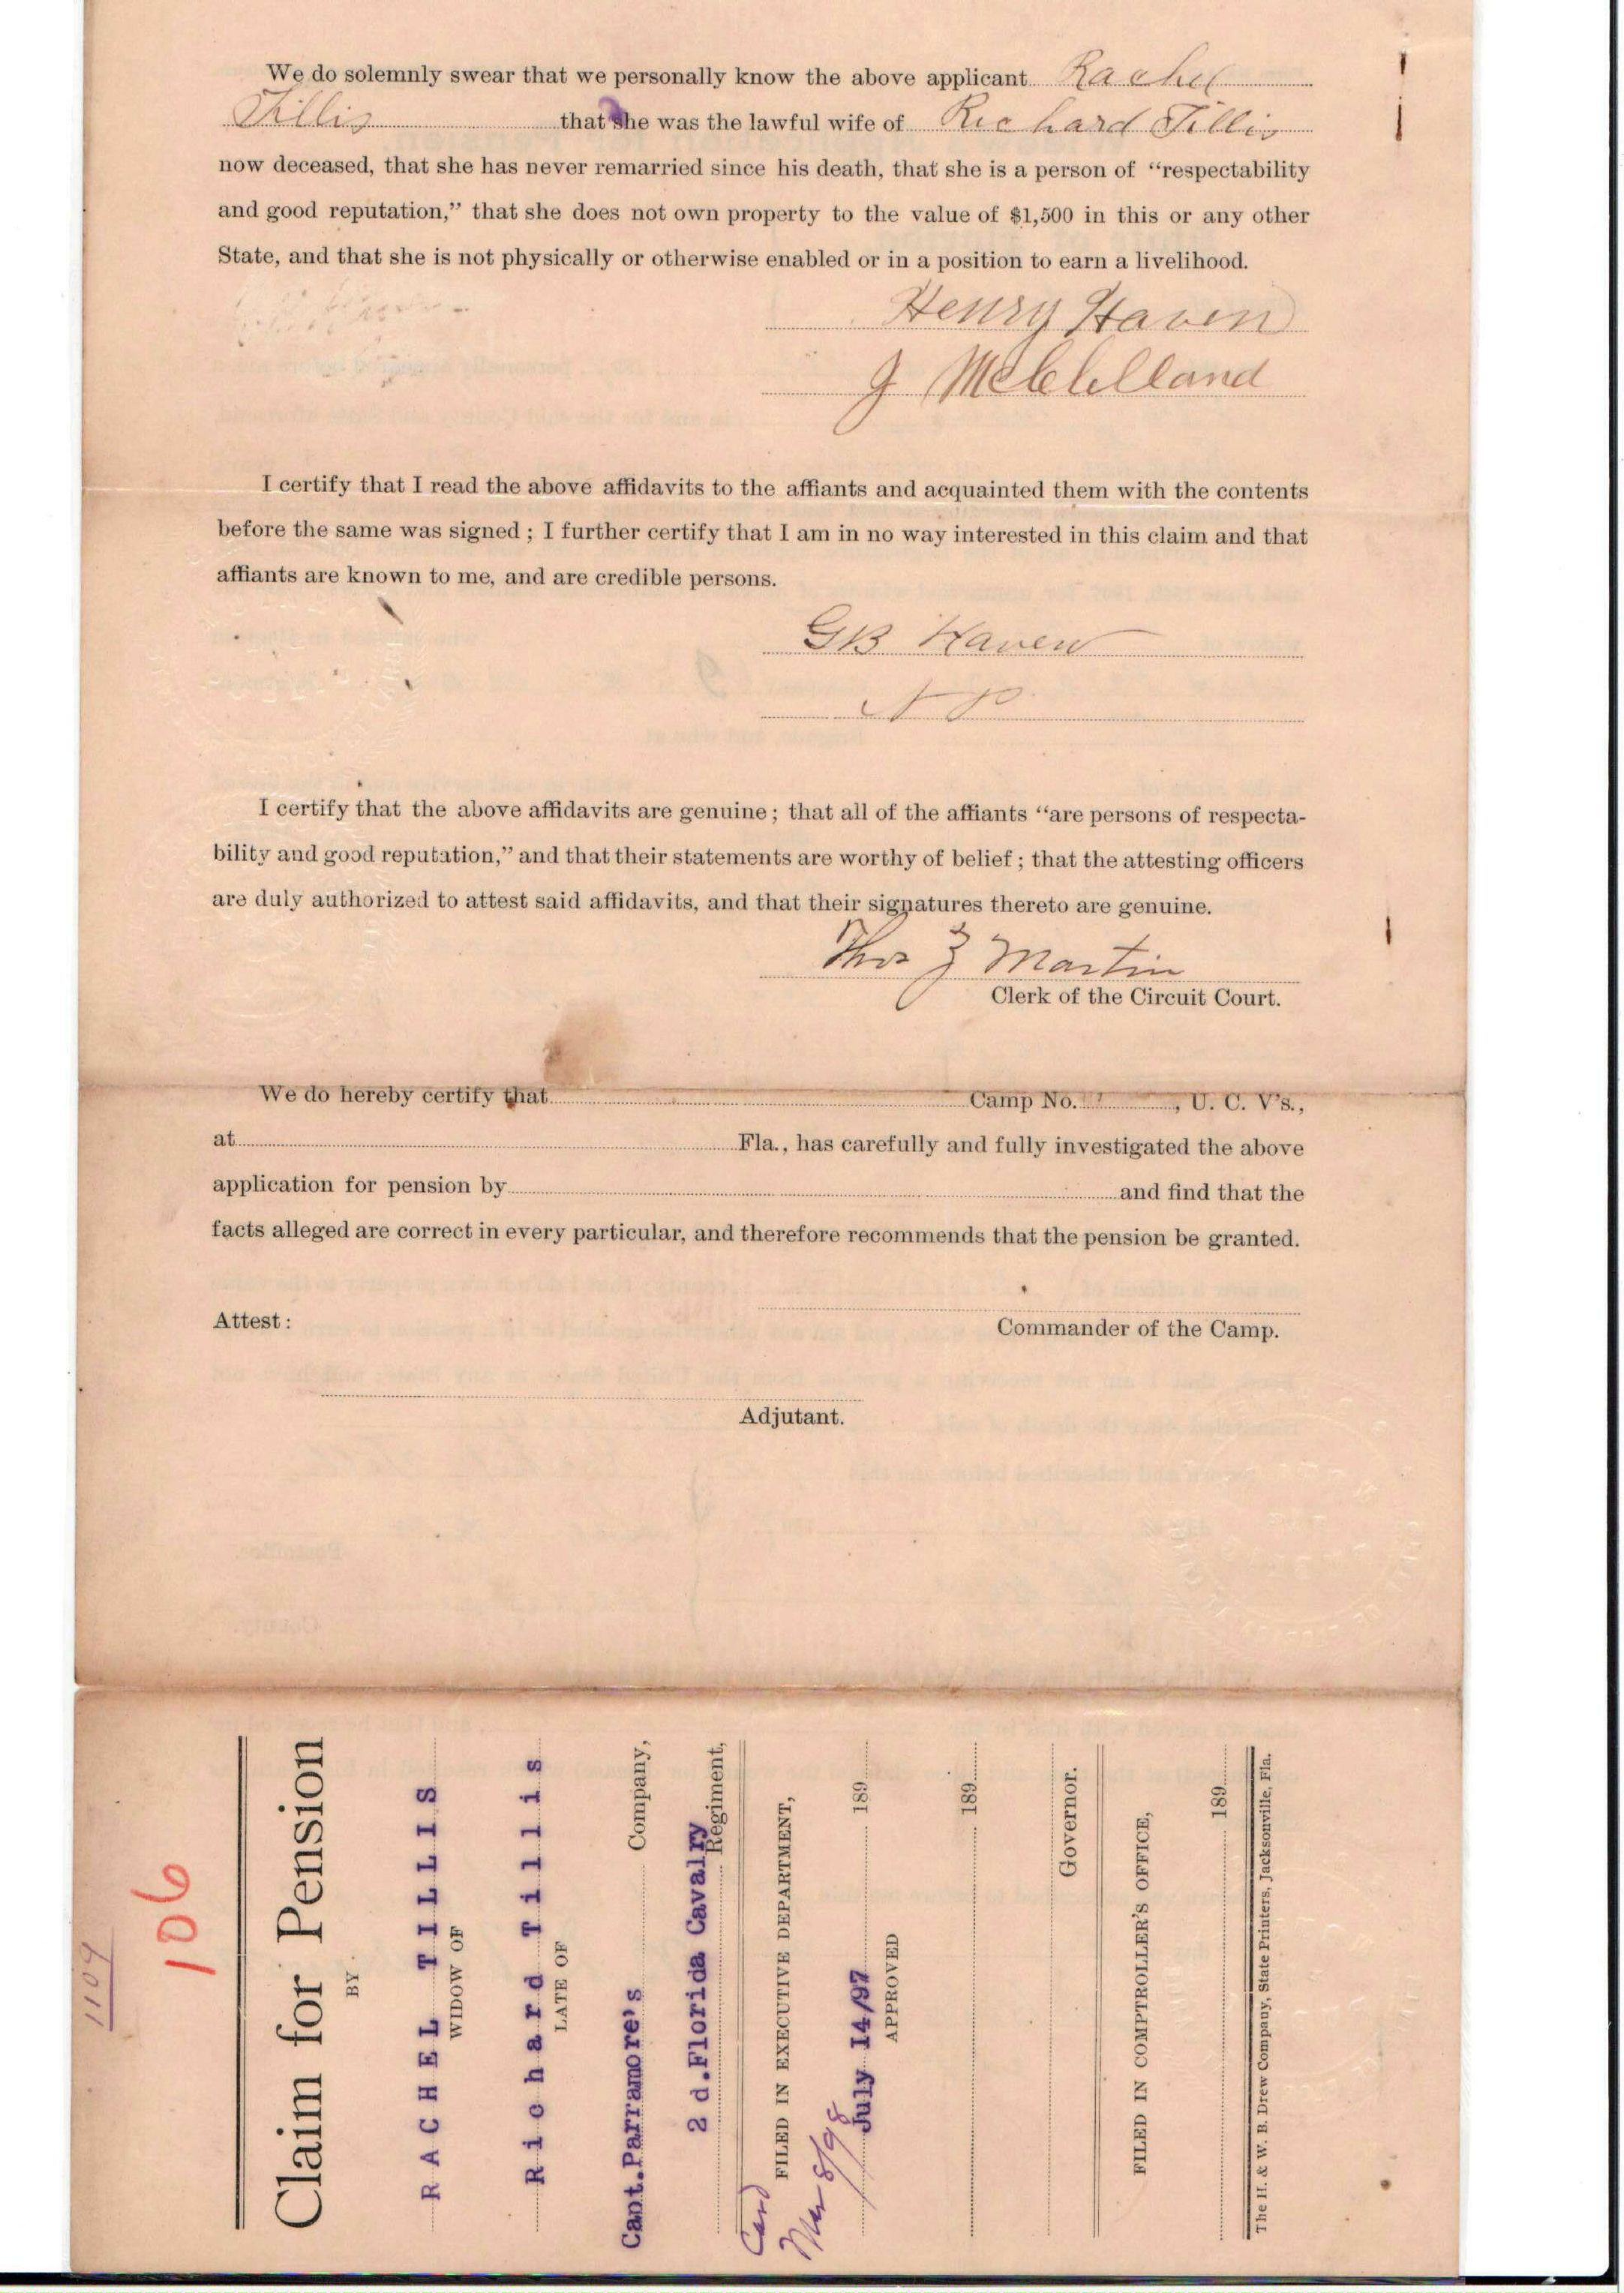 We do solemnly swear that we personally know the above applicant Rachel
Tillis that she was the lawful wife of Richard Tillis
now deceased, that she has never remarried since his death, that she is a person of “respectability
and good reputation,” that she does not own property to the value of $1,500 in this or any other
State, and that she is not physically or otherwise enabled or in a position to earn a livelihood.
Henry Haven
J McClelland
I certify that I read the above affidavits to the affiants and acquainted them with the contents
before the same was signed ; I further certify that I am in no way interested in this claim and that
affiants are known to me, and are credible persons.
GB Haven
N P
I certify that the above affidavits are genuine ; that all of the affiants “are persons of respecta-
bility and good reputation,” and that their statements are worthy of belief ; that the attesting officers
are duly authorized to attest said affidavits, and that their signatures thereto are genuine.
Thos J Martin
Clerk of the Circuit Court.
We do hereby certify that Camp No. , U. C. V's.,
at Fla., has carefully and fully investigated the above
application for pension by and find that the
facts alleged are correct in every particular, and therefore recommends that the pension be granted.
Attest :
Commander of the Camp.
Adjutant.
1109
106
Claim for Pension
BY
RACHEL TILLIS
WIDOW OF
Richard Tillis
LATE OF
Capt.Parramore's Company,
2 d.Florida Cavalry Regiment,
FILED IN EXECUTIVE DEPARTMENT,
Card
Mar 8/98
July 14/97 189
APPROVED
189
Governor.
FILED IN COMPTROLLER'S OFFICE,
189
The H. & W. B. Drew Company, State Printers, Jacksonville, Fla.